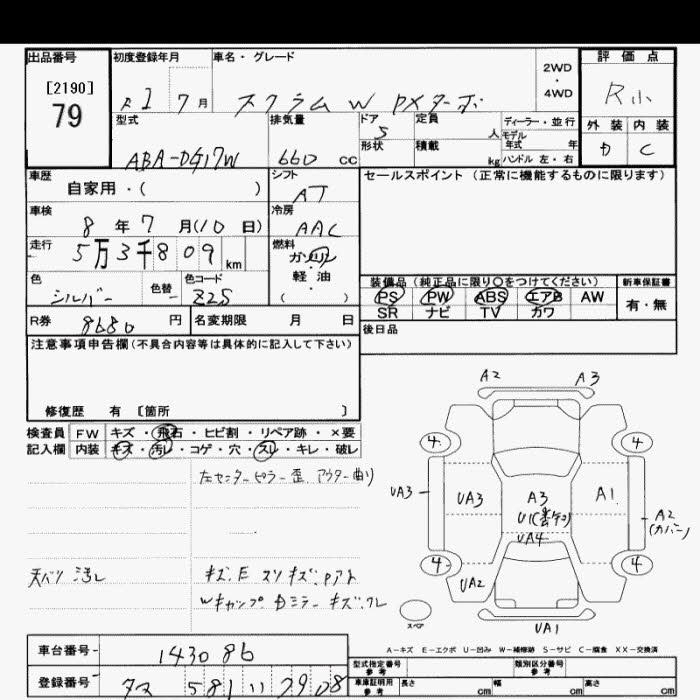 出品番号
[2190]
79
初度登録年月
R1 7月
車名・グレード
スクラム W PXターボ
2WD
・
4WD
評価点
R小
外装 内装
D C
型式
ABA-DG17W
排気量
660 cc
ドア
5
形状
定員
人
積載
kg
ディーラー・並行
モデル
年式 年
ハンドル 左・右
車歴
自家用・( )
シフト
AT
セールスポイント (正常に機能するものに限ります)
車検
8年7月(10日)
冷房
AAC
走行
5万3千809km
燃料
ガソリン
・
軽油
( )
色
シルバー
色替
色コード
Z2S
装備品 (純正品に限り〇をつけてください)
新車保証書
PS PW ABS エアB AW
SR ナビ TV カワ
有・無
R券
8680円
名変期限 月 日
後日品
注意事項申告欄(不具合内容等は具体的に記入して下さい)
修復歴 有 [箇所 ]
検査員 FW キズ・飛石・ヒビ割・リペア跡・×要
記入欄 内装 キズ・汚レ・コゲ・穴・スレ・キレ・破レ
左センターピラー歪 アウター曲り
天バリ 汚レ
キズ、E スリキズ、Pアト
Wキャップ Dミラー キズ、ワレ
A2 A3
4 4
UA3 UA3 A3 A1 A2
(カバー)
UA4
4 4
UA2
UA1
スペア
A-キズ E-エクボ U-凹み W-補修跡 S-サビ C-腐食 XX-交換済
車台番号
143086
登録番号
581 11 2908
型式指定番号
参考
類別区分番号
参考
車庫証明用
参考
長さ cm 幅 cm 高さ cm